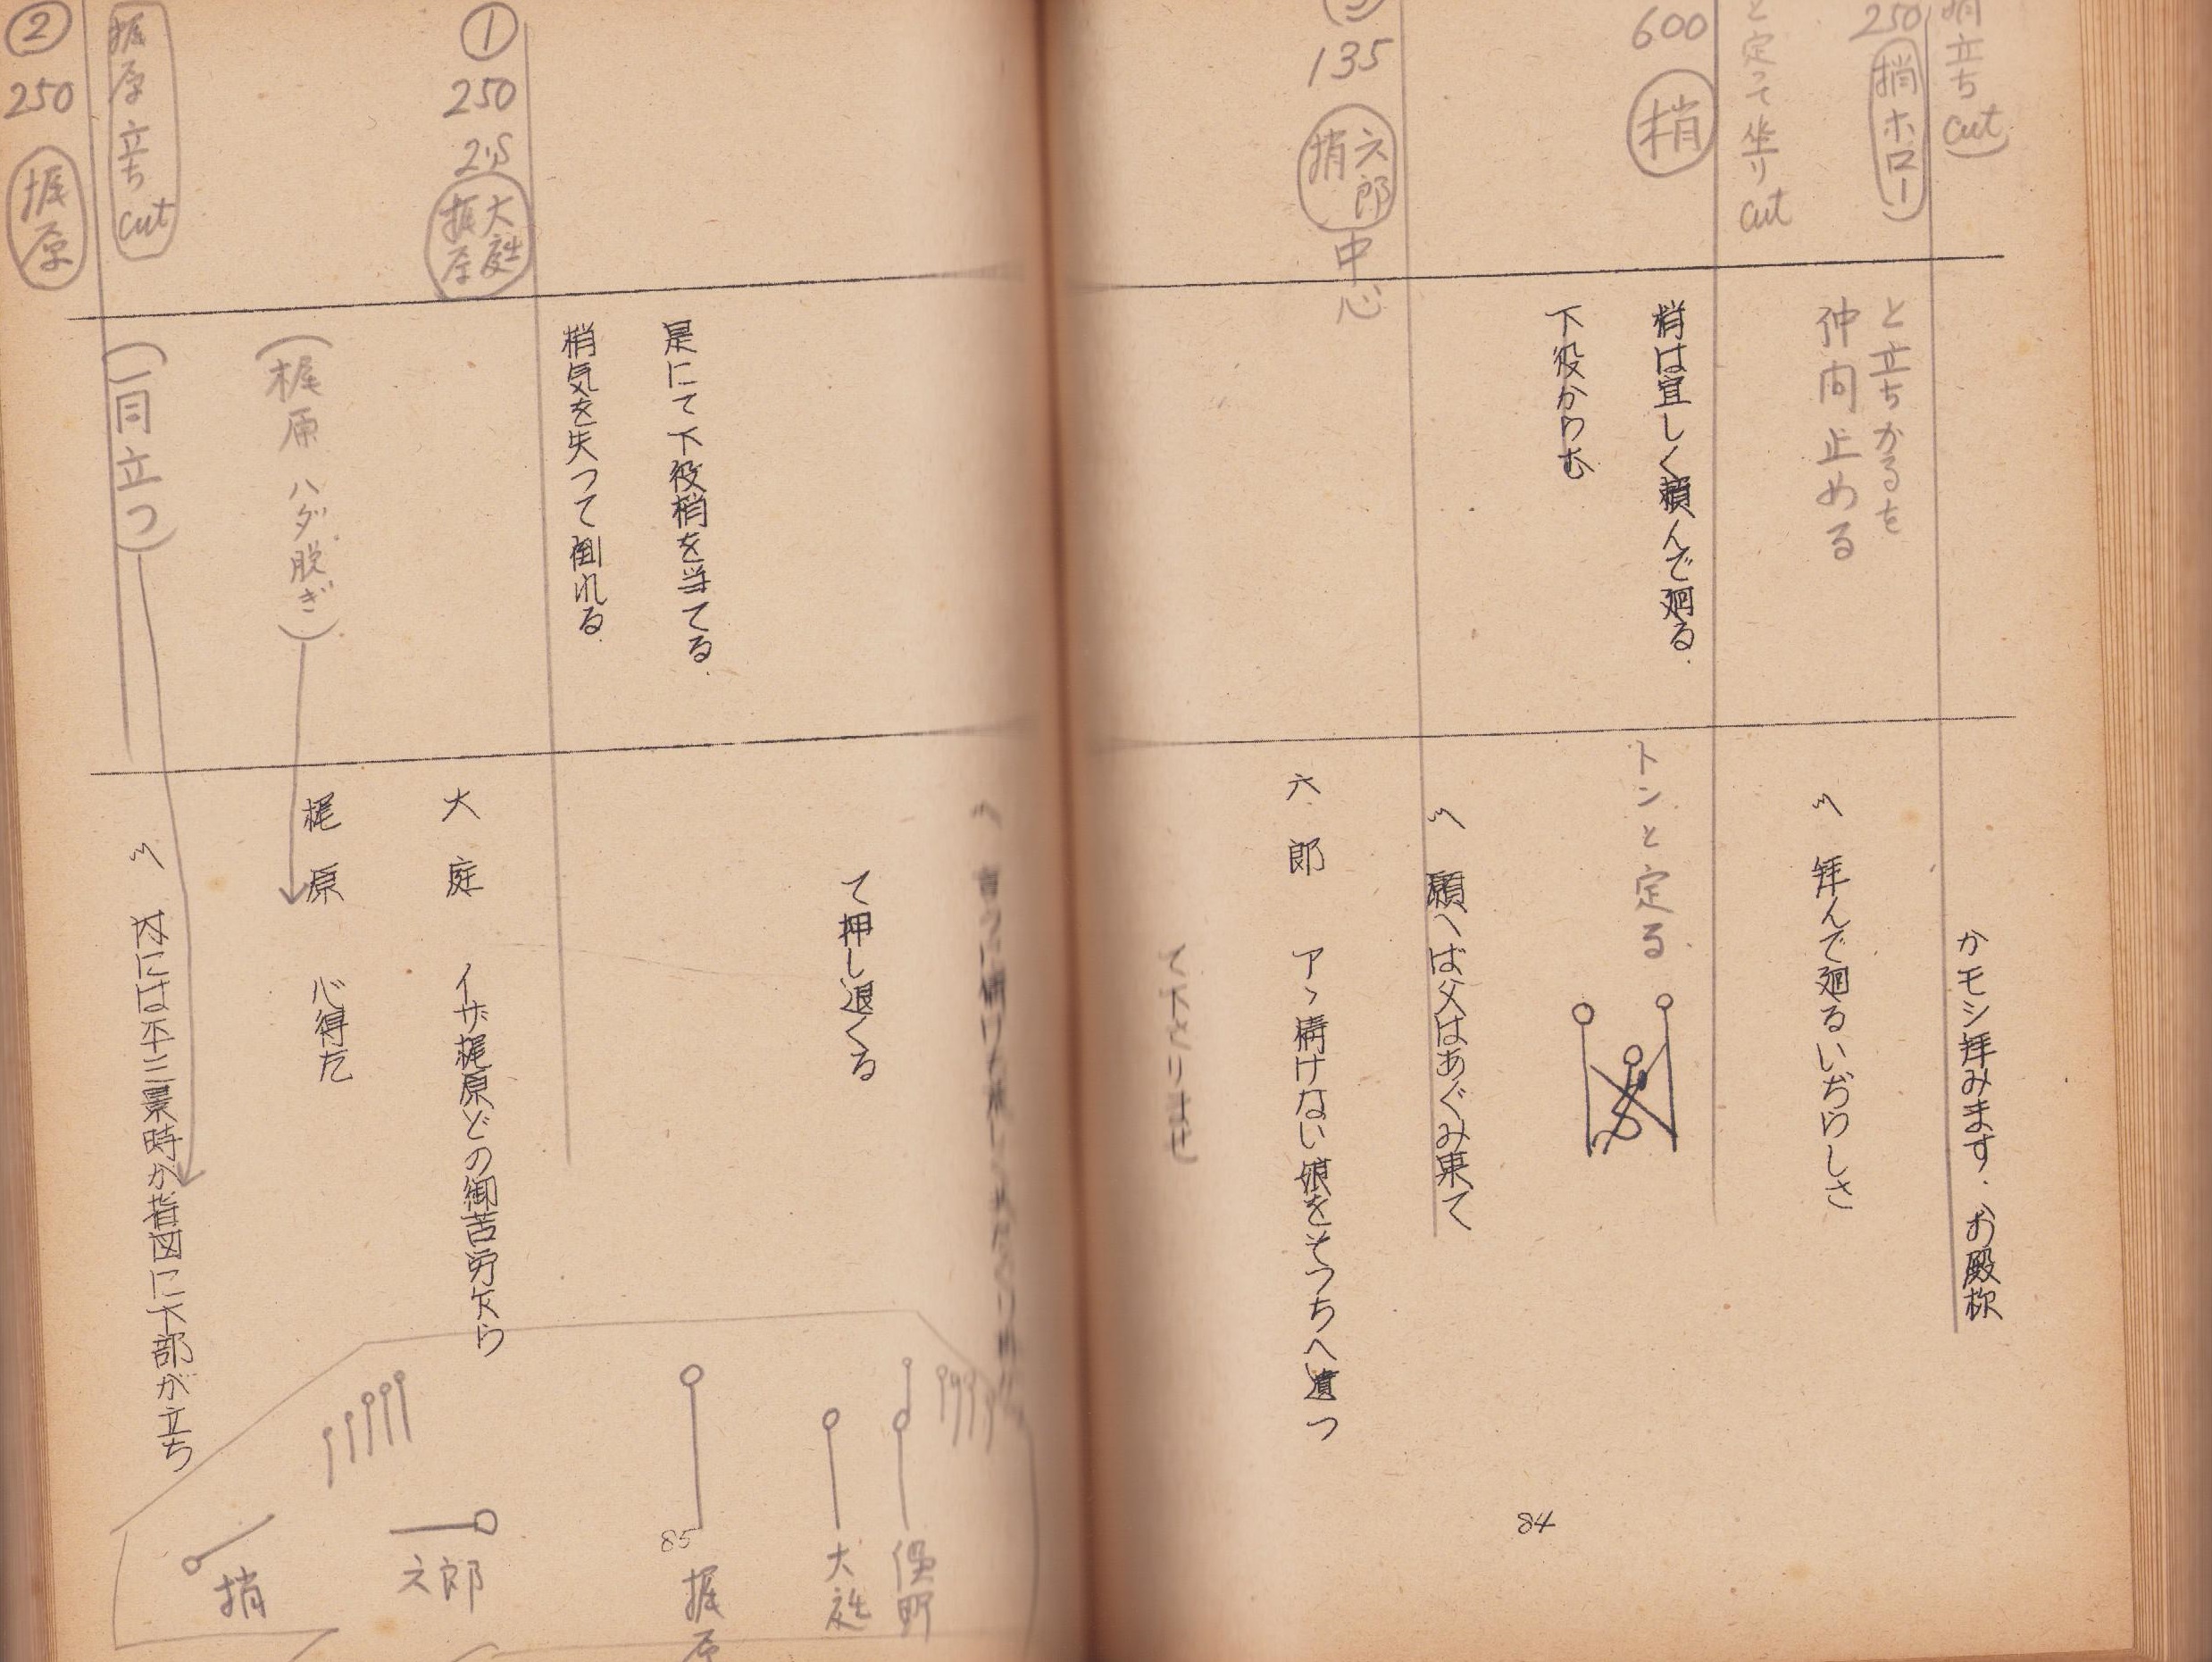 梢立ち
cut
250
梢ホロー
と定って坐り
cut
600
梢
135
六郎
梢
中心
と立ちかるを
仲間止める
梢は宜しく頼んで廻る.
下役からむ
かモシ拝みます. お殿様
〽 拝んで廻るいぢらしさ
トンと定る.
〽 願へば父はあぐみ果て
六郎 アヽ情けない娘をそつちへ遣つ
て下さりませ
84
①
250
2'S
大庭
梶原
梶原立ち
cut
②
250
梶原
是にて下役梢を当てる.
梢気を失つて倒れる.
(梶原 ハダ脱ぎ).
(一同立つ)
て押し退くる
大庭 イザ梶原どの御苦労ながら
梶原 心得た
下部が立ち
俣野
大庭
梶原
六郎
梢
85